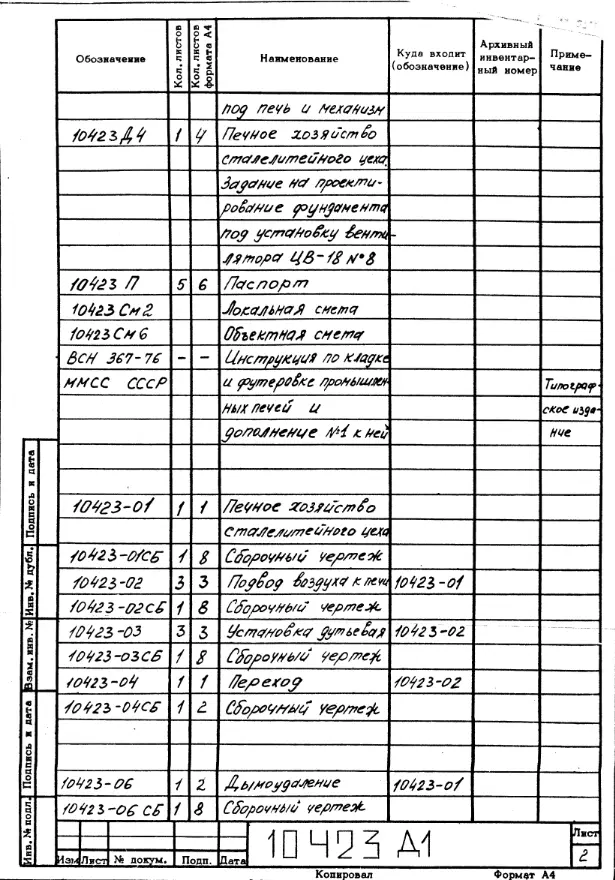 Обозначение Кол. листов Кол. листов формата А4 Наименование Куда входит (обозначение) Архивный инвентар-ный номер Приме-чание
под печь и механизм
10423Д4 1 4 Печное хозяйство
сталелитейного цеха.
Задание на проекти-
рование фундамента
под установку венти-
лятора ЦВ-18 №8
10423 П 5 6 Паспорт
10423 См2 Локальная смета
10423 См6 Объектная смета
ВСН 367-76 – – Инструкция по кладке
ММСС СССР и футеровке промышлен- Типограф-
ных печей и ское изда-
дополнение №1 к ней ние
10423-01 1 1 Печное хозяйство
сталелитейного цеха
10423-01СБ 1 8 Сборочный чертеж
10423-02 3 3 Подвод воздуха к печи 10423-01
10423-02СБ 1 8 Сборочный чертеж
10423-03 3 3 Установка дутьевая 10423-02
10423-03СБ 1 8 Сборочный чертеж
10423-04 1 1 Переход 10423-02
10423-04СБ 1 2 Сборочный чертеж
10423-06 1 2 Дымоудаление 10423-01
10423-06 СБ 1 8 Сборочный чертеж
Подпись и дата
Инв. № дубл.
Взам. инв. №
Подпись и дата
Инв. № подл.
Изм Лист № докум. Подп. Дата
10423 Д1
Лист
2
Копировал Формат А4